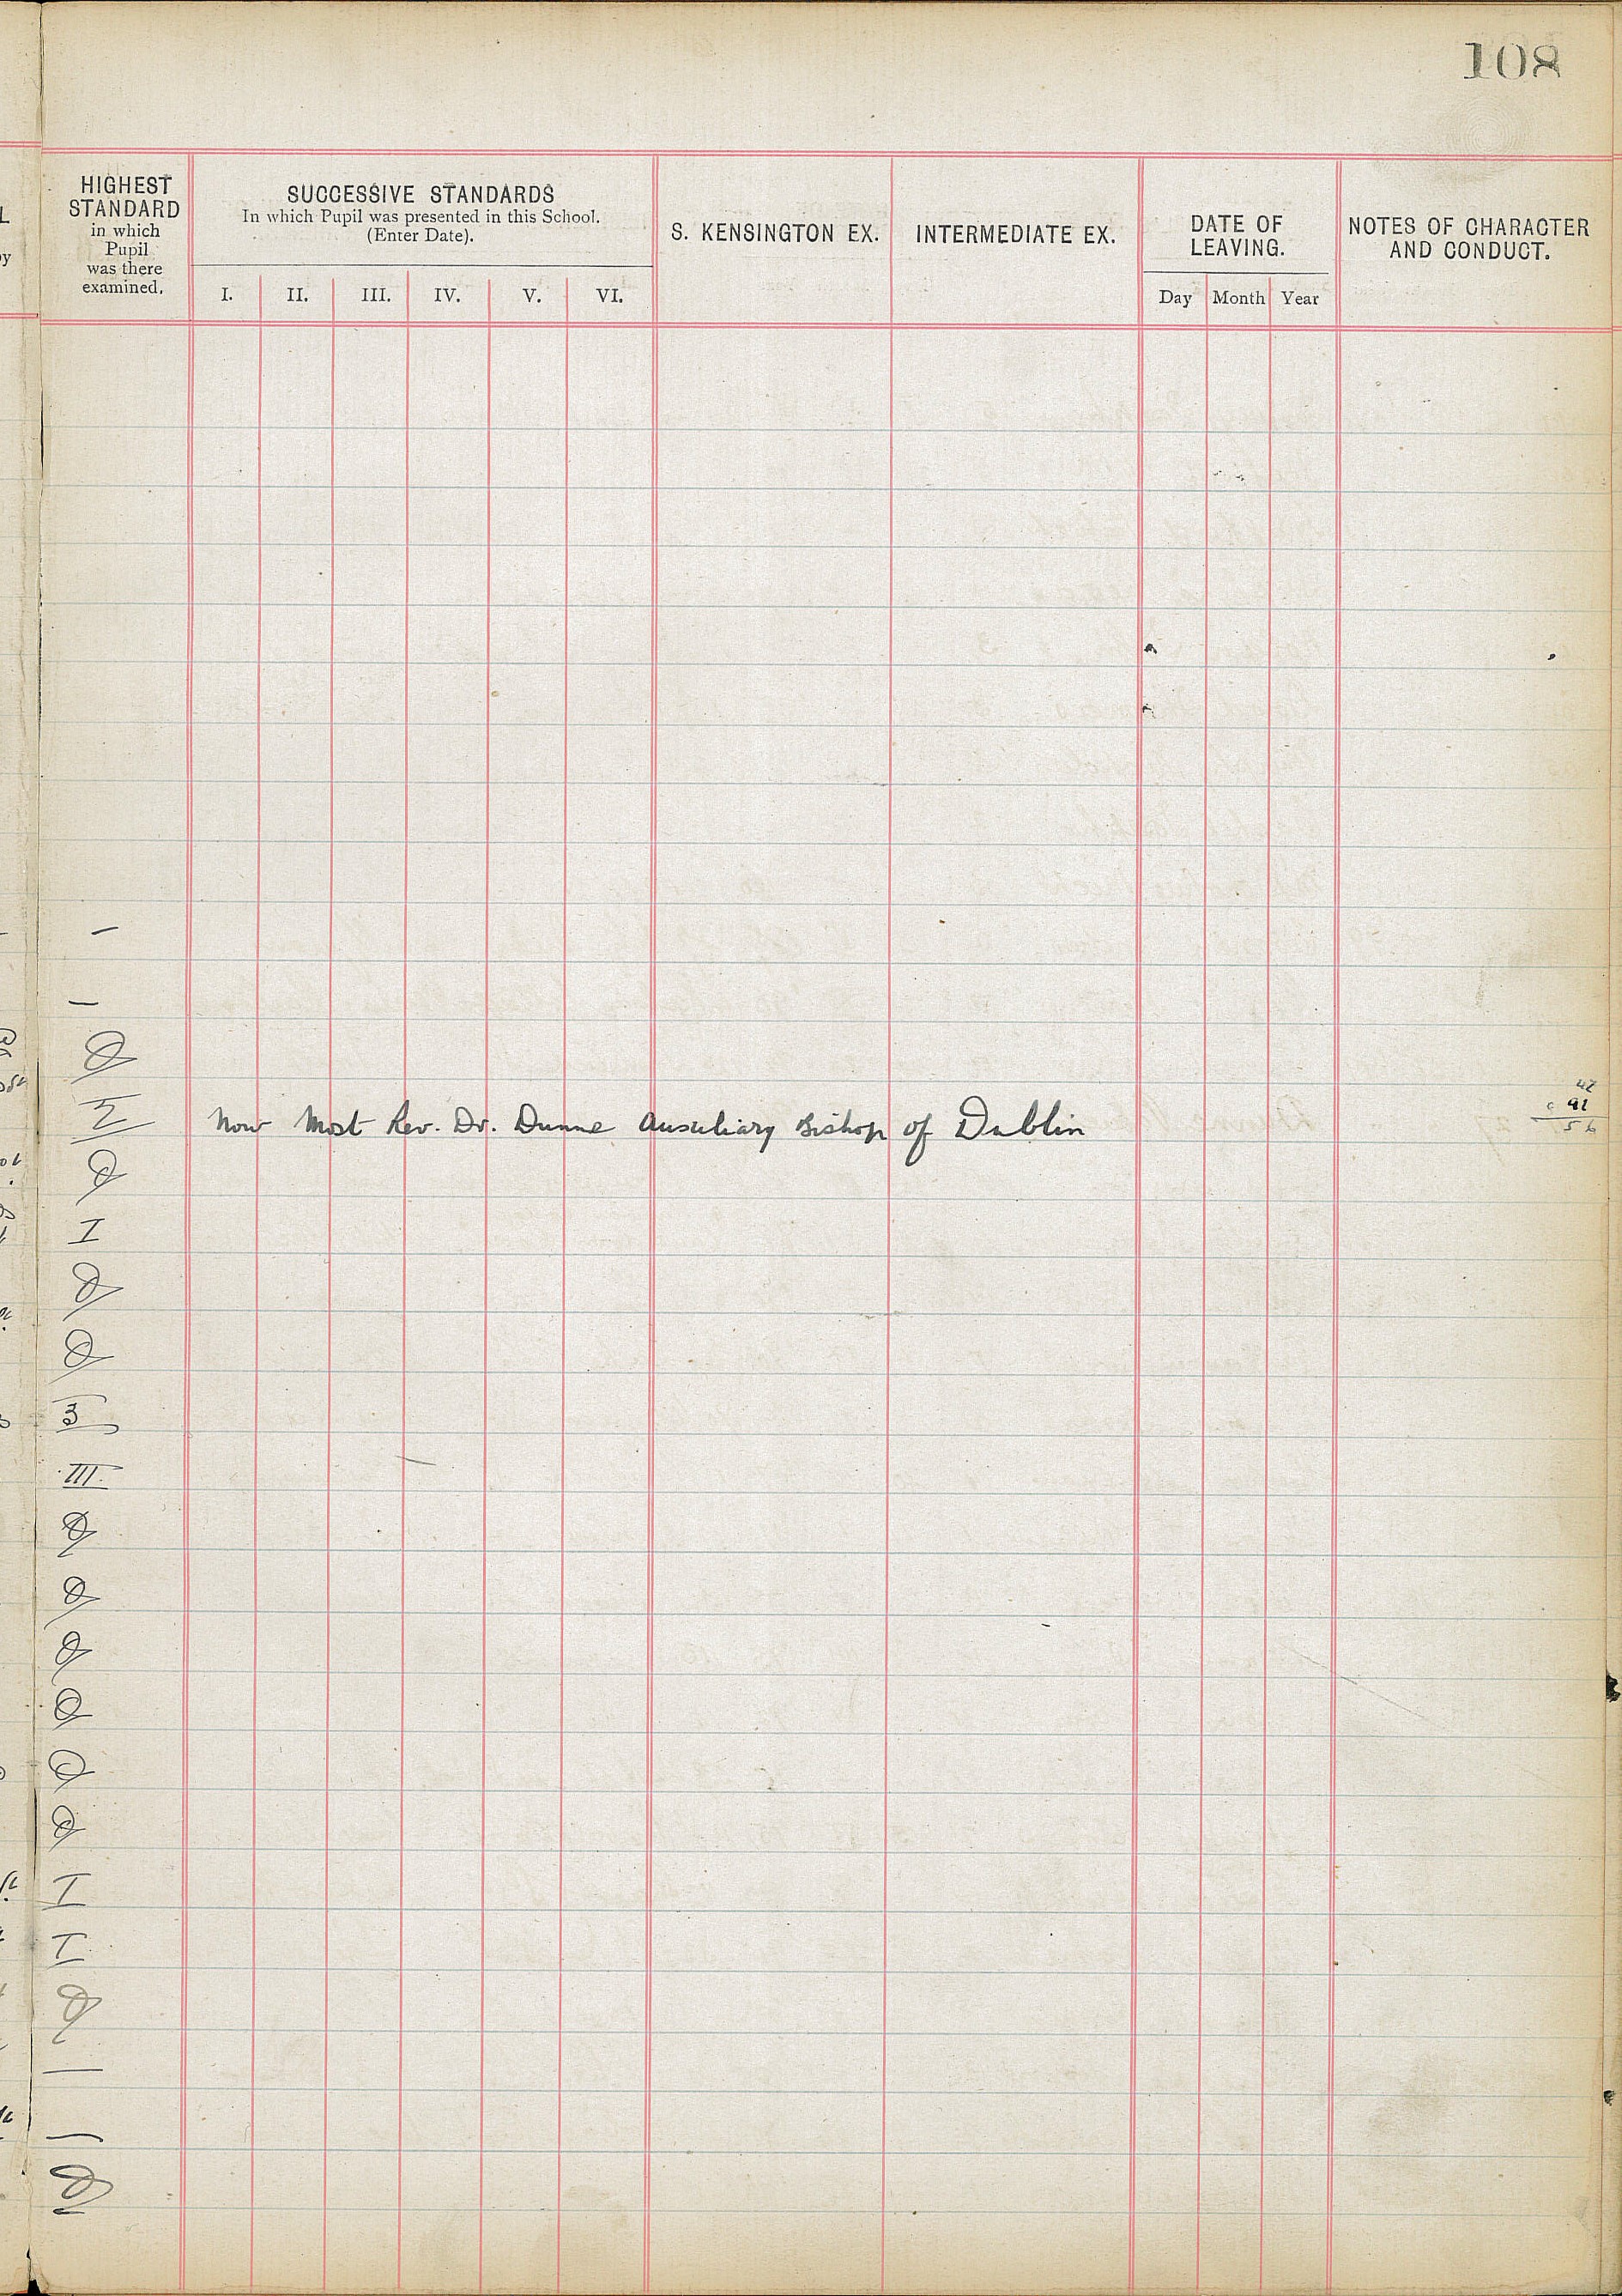 108
HIGHEST
STANDARD
in which
Pupil
was there
examined.
SUCCESSIVE STANDARDS
In which Pupil was presented in this School.
(Enter Date).
I. II. III. IV. V. VI.
S. KENSINGTON EX.
INTERMEDIATE EX.
DATE OF
LEAVING.
Day Month Year
NOTES OF CHARACTER
AND CONDUCT.
Now Most Rev. Dr. Dunne Auxiliary Bishop of Dublin
I
3
III.
I
I